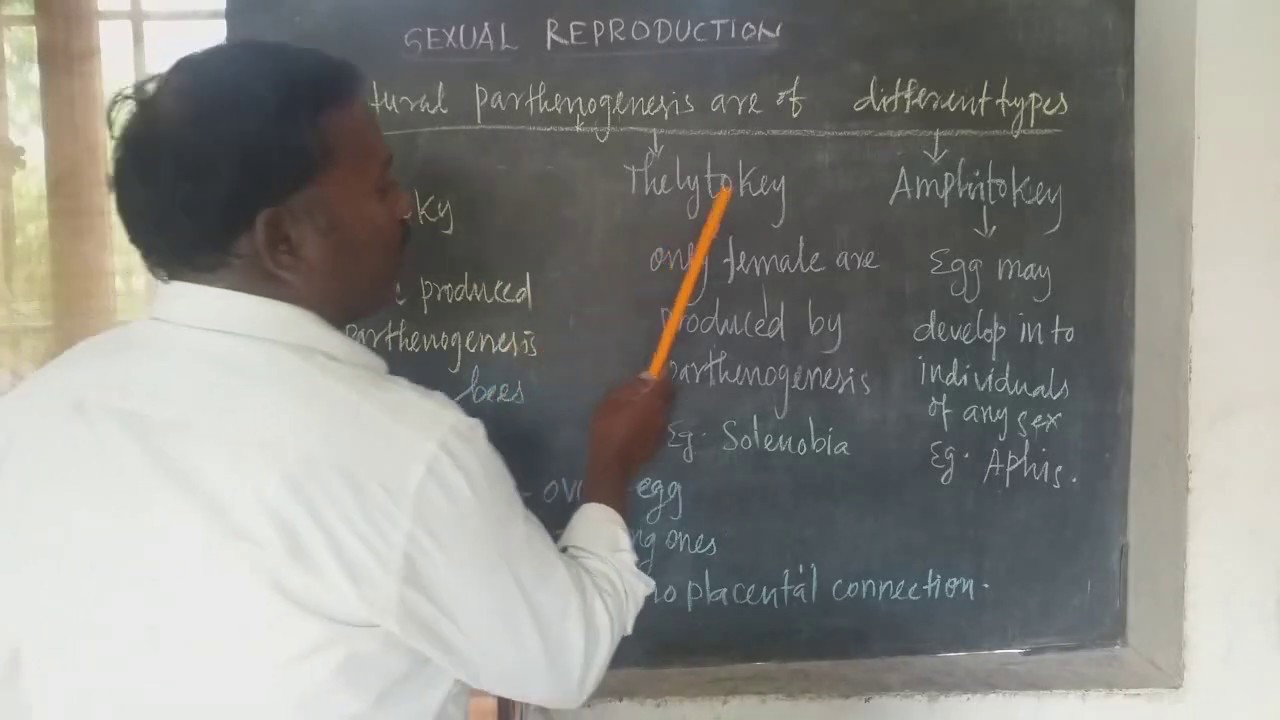 SEXUAL REPRODUCTION
tural parthenogenesis are of different types
ky
produced
parthenogenesis
bees
Thelytokey
only female are
produced by
parthenogenesis
Eg. Solenobia
Amphitokey
Egg may
develop in to
individuals
of any sex
Eg. Aphis.
egg
ng ones
no placental connection.